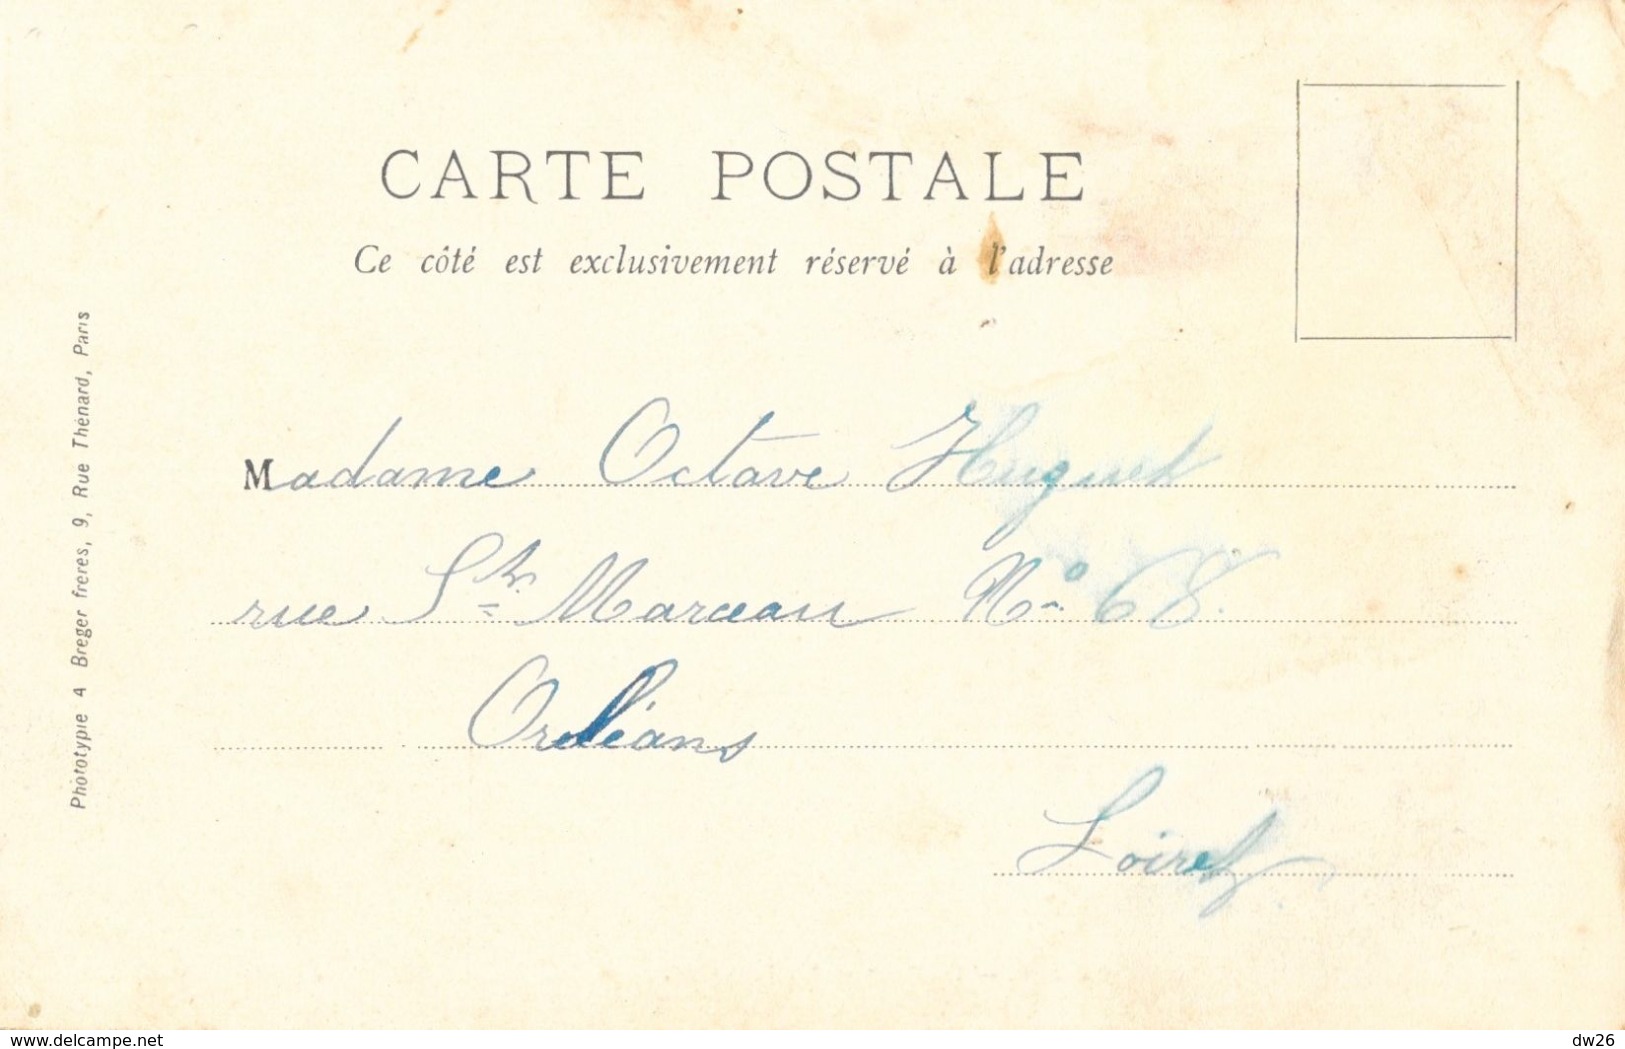 CARTE POSTALE
Ce côté est exclusivement réservé à l'adresse
Madame Octave Huguet
rue St. Marceau No. 68.
Orléans
Loiret.
Phototypie A Breger frères, 9, Rue Thénard, Paris
www.delcampe.net
dw26